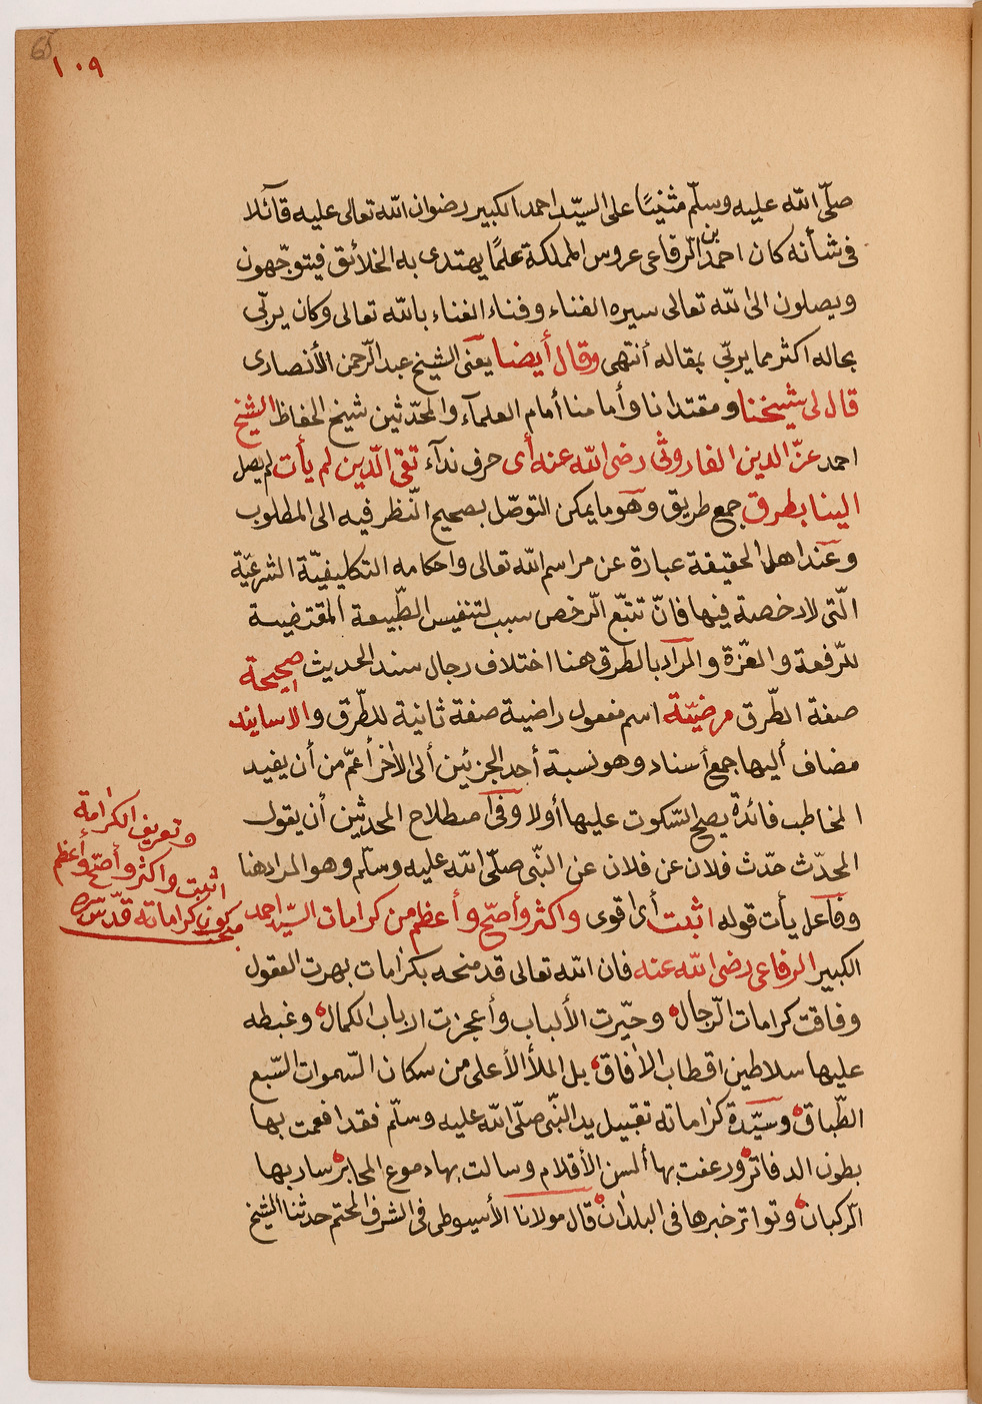 65
١٠٩
صلّى الله عليه وسلّم مثنيًا على السيّد احمد الكبير رضوان الله تعالى عليه قآئلا
فى شأنه كان احمد بن الرّفاعى عروس المملكة علمًا يهتدى به الخلائق فيتوجّهون
ويصلون الى الله تعالى سيره الفناء وفناء الفناء بالله تعالى وكان يربّى
بحاله اكثر مما يربّى بمقاله أنتهى وقال أيضا يعنى الشيخ عبد الرّحمن الأنصارى
قال لى شيخنا ومقتدانا وأمامنا أمام العلمآء والمحدّثين شيخ الحفاظ الشيخ
احمد عزّ الدين الفاروثى رضى الله عنه أى حرف ندآء تقى الدّين لم يأت لم يصل
الينا بطرق جمع طريق وهو ما يمكن التوصّل بصحيح النّظر فيه الى المطلوب
وعند اهل الحقيقة عبارة عن مراسم الله تعالى واحكامه التكليفيّة الشرعيّة
الّتى لا رخصة فيها فانّ تتبّع الرّخص سبب لتنفيس الطّبيعة المقتضية
للرّفعة والعزّة والمراد بالطرق هنا اختلاف رجال سند الحديث صحيحة
صفة الطّرق مرضيّة اسم مفعول راضية صفة ثانية للطّرق والاسانيد
مضاف أليها جمع أسناد وهو نسبة أحد الجزئين ألى الأخر أعمّ من أن يفيد
المخاطب فائدة يصح السّكوت عليها أولا وفى أصطلاح المحدثين أن يقول
المحدّث حدّث فلان عن فلان عن النّبى صلّى الله عليه وسلّم وهو المراد هنا
وفآعل يأت قوله اثبت أى اقوى واكثر وأصحّ وأعظم من كرامات السيّد احمد
الكبير الرفاعى رضى الله عنه فان الله تعالى قد منحه بكرامات بهرت العقول
وفاقت كرامات الرّجال وحيّرت الألباب وأعجزت ارباب الكمال وغبطه
عليها سلاطين اقطاب الأفاق بل الملأ الأعلى من سكان السّموات السّبع
الطّباق وسيّدة كراماته تقبيل يد النّبى صلّى الله عليه وسلّم فقد افعمت بها
بطون الدفاتر ورعفت بها ألسن الأقلام وسالت بها دموع المحابر سار بها
الرّكبان وتواتر خبرها فى البلدان قال مولانا الأسيوطى فى الشرف المحتم حدثنا الشيخ
وتعريف الكرامة
اثبت واكثر وأصحّ وأعظم
كون كراماته قدّس سره